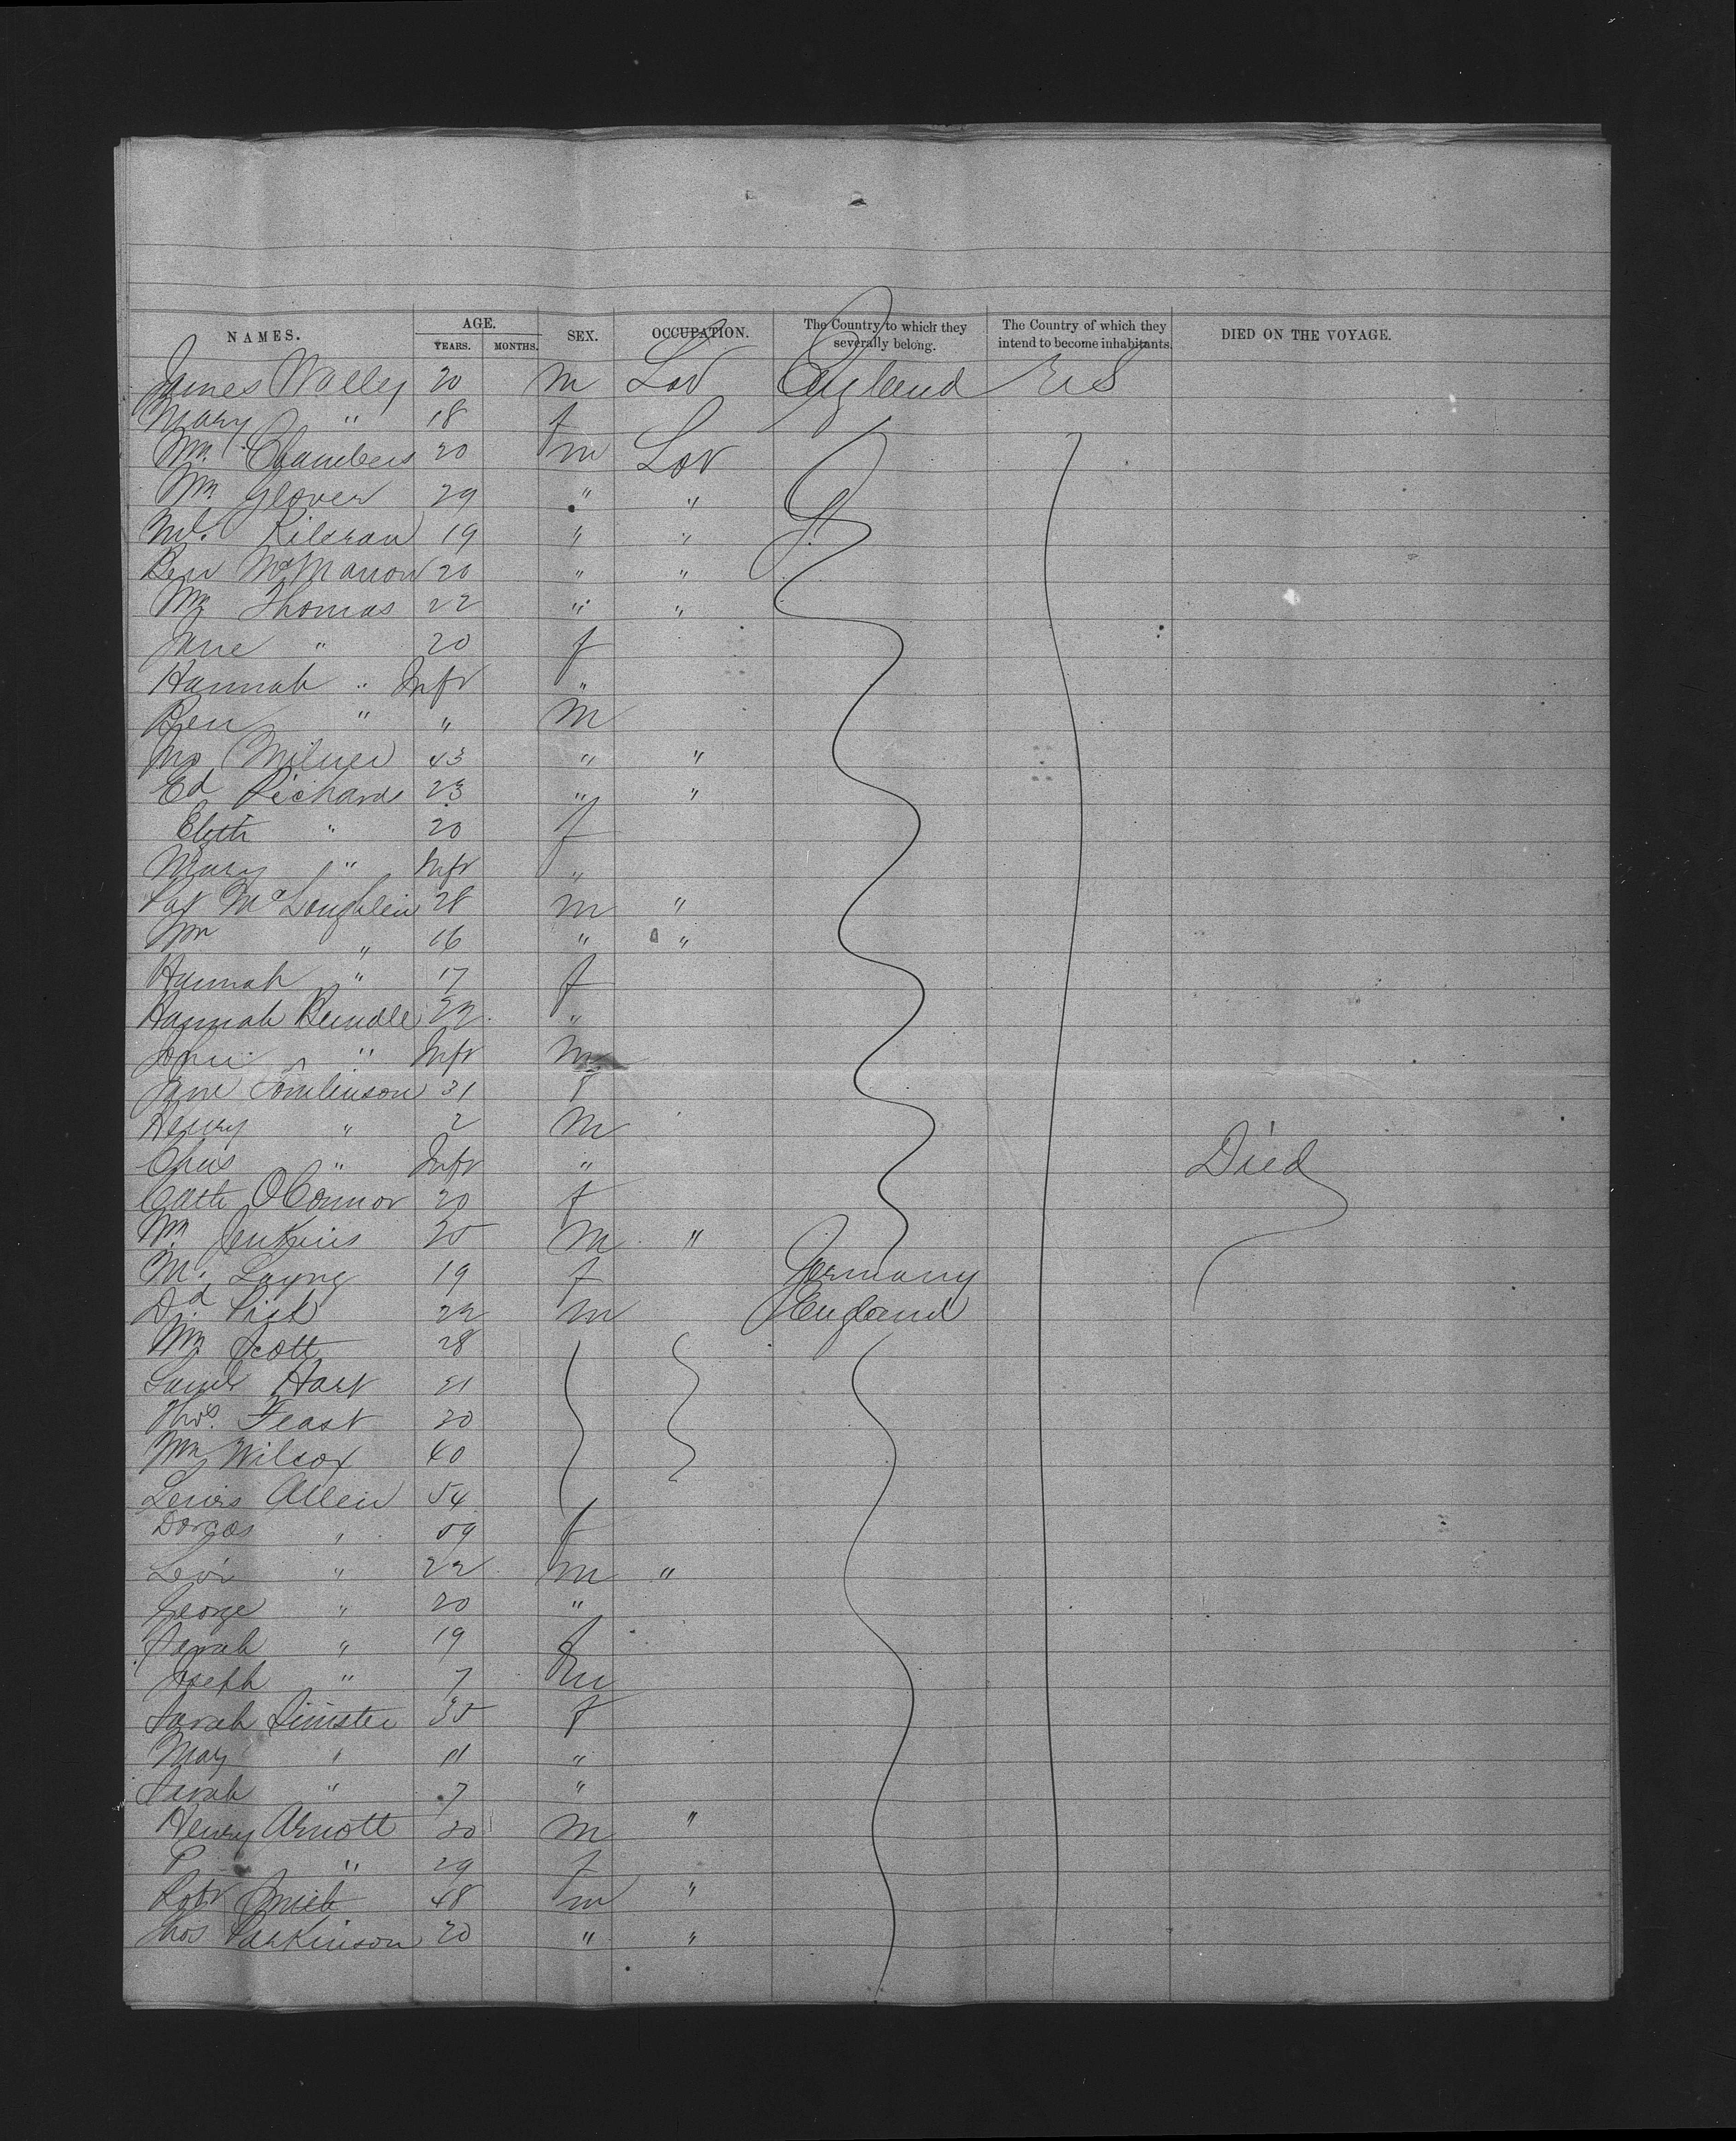 NAMES. AGE. YEARS. MONTHS. SEX. OCCUPATION. The Country to which they severally belong. The Country of which they intend to become inhabitants. DIED ON THE VOYAGE.
James Walley 20 m Lab England U S
Mary " 18 f
Wm Chambers 20 m Lab
Wm Glover 29 " "
Ml. Kilcran 19 " "
Ben McManon 20 " "
Wm Thomas 22 " "
Jane " 20 f
Hannah " Inft "
Ben " " m
Jno Milner 43 " "
Ed Richards 23 " "
Elizth " 20 f
Mary " Inft "
Pat McLoughlin 28 m "
Wm " 16 " "
Hannah " 17 f
Hannah Bundle 22 "
John " Inft m
Jane Tomlinson 31 f
Henry " 2 m
Chas " Inft " Died
Cath O'Connor 20 f
Wm Jenkins 25 m "
M. Layng 19 f Germany
Dd 22 m England
Wm Scott 28
Saml Hart 21
Thos. Feast 20
Wm Wilcox 40
Lewis Allen 54
Dorcas " 59 f
Levi " 22 m "
George " 20 "
Sarah " 19 f
Joseph " 7 m
Sarah 35 f
May " 11 "
Sarah " 7 "
Henry Arnott 20 m "
P " 29 f
Robt Smith 48 m "
Thos Parkinson 20 " "